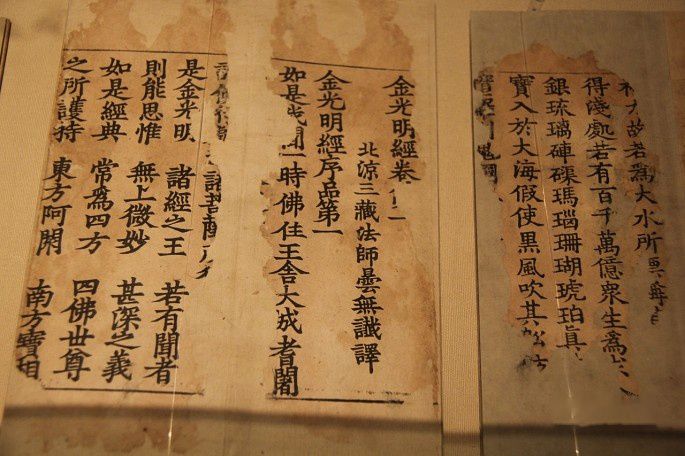 故若為大水所漂
得淺處若有百千萬億衆生為
銀琉璃硨磲瑪瑙珊瑚琥珀真
寶入於大海假使黑風吹其船
金光明經卷
北涼三藏法師曇無讖譯
金光明經序品第一
如是我聞一時佛住王舍大城耆闍
諸菩薩
是金光明 諸經之王 若有聞者
則能思惟 無上微妙 甚深之義
如是經典 常為四方 四佛世尊
之所護持 東方阿閦 南方寶相